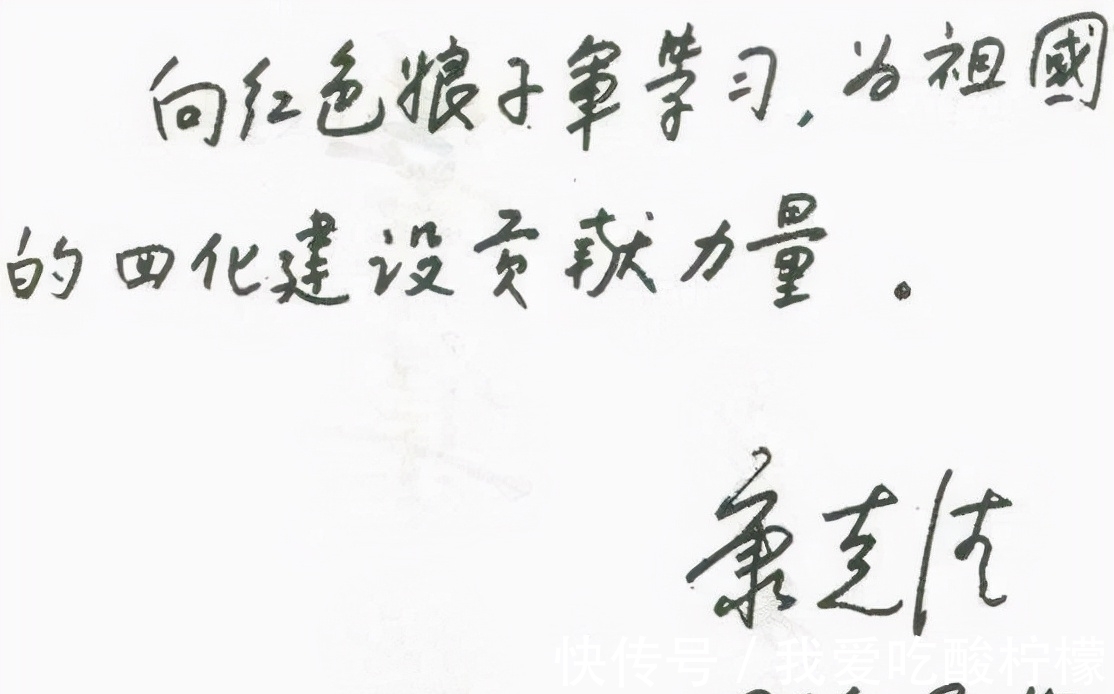 向红色娘子軍学习,为祖國
的四化建设贡献力量.
康克清
快传号 / 我爱吃酸柠檬